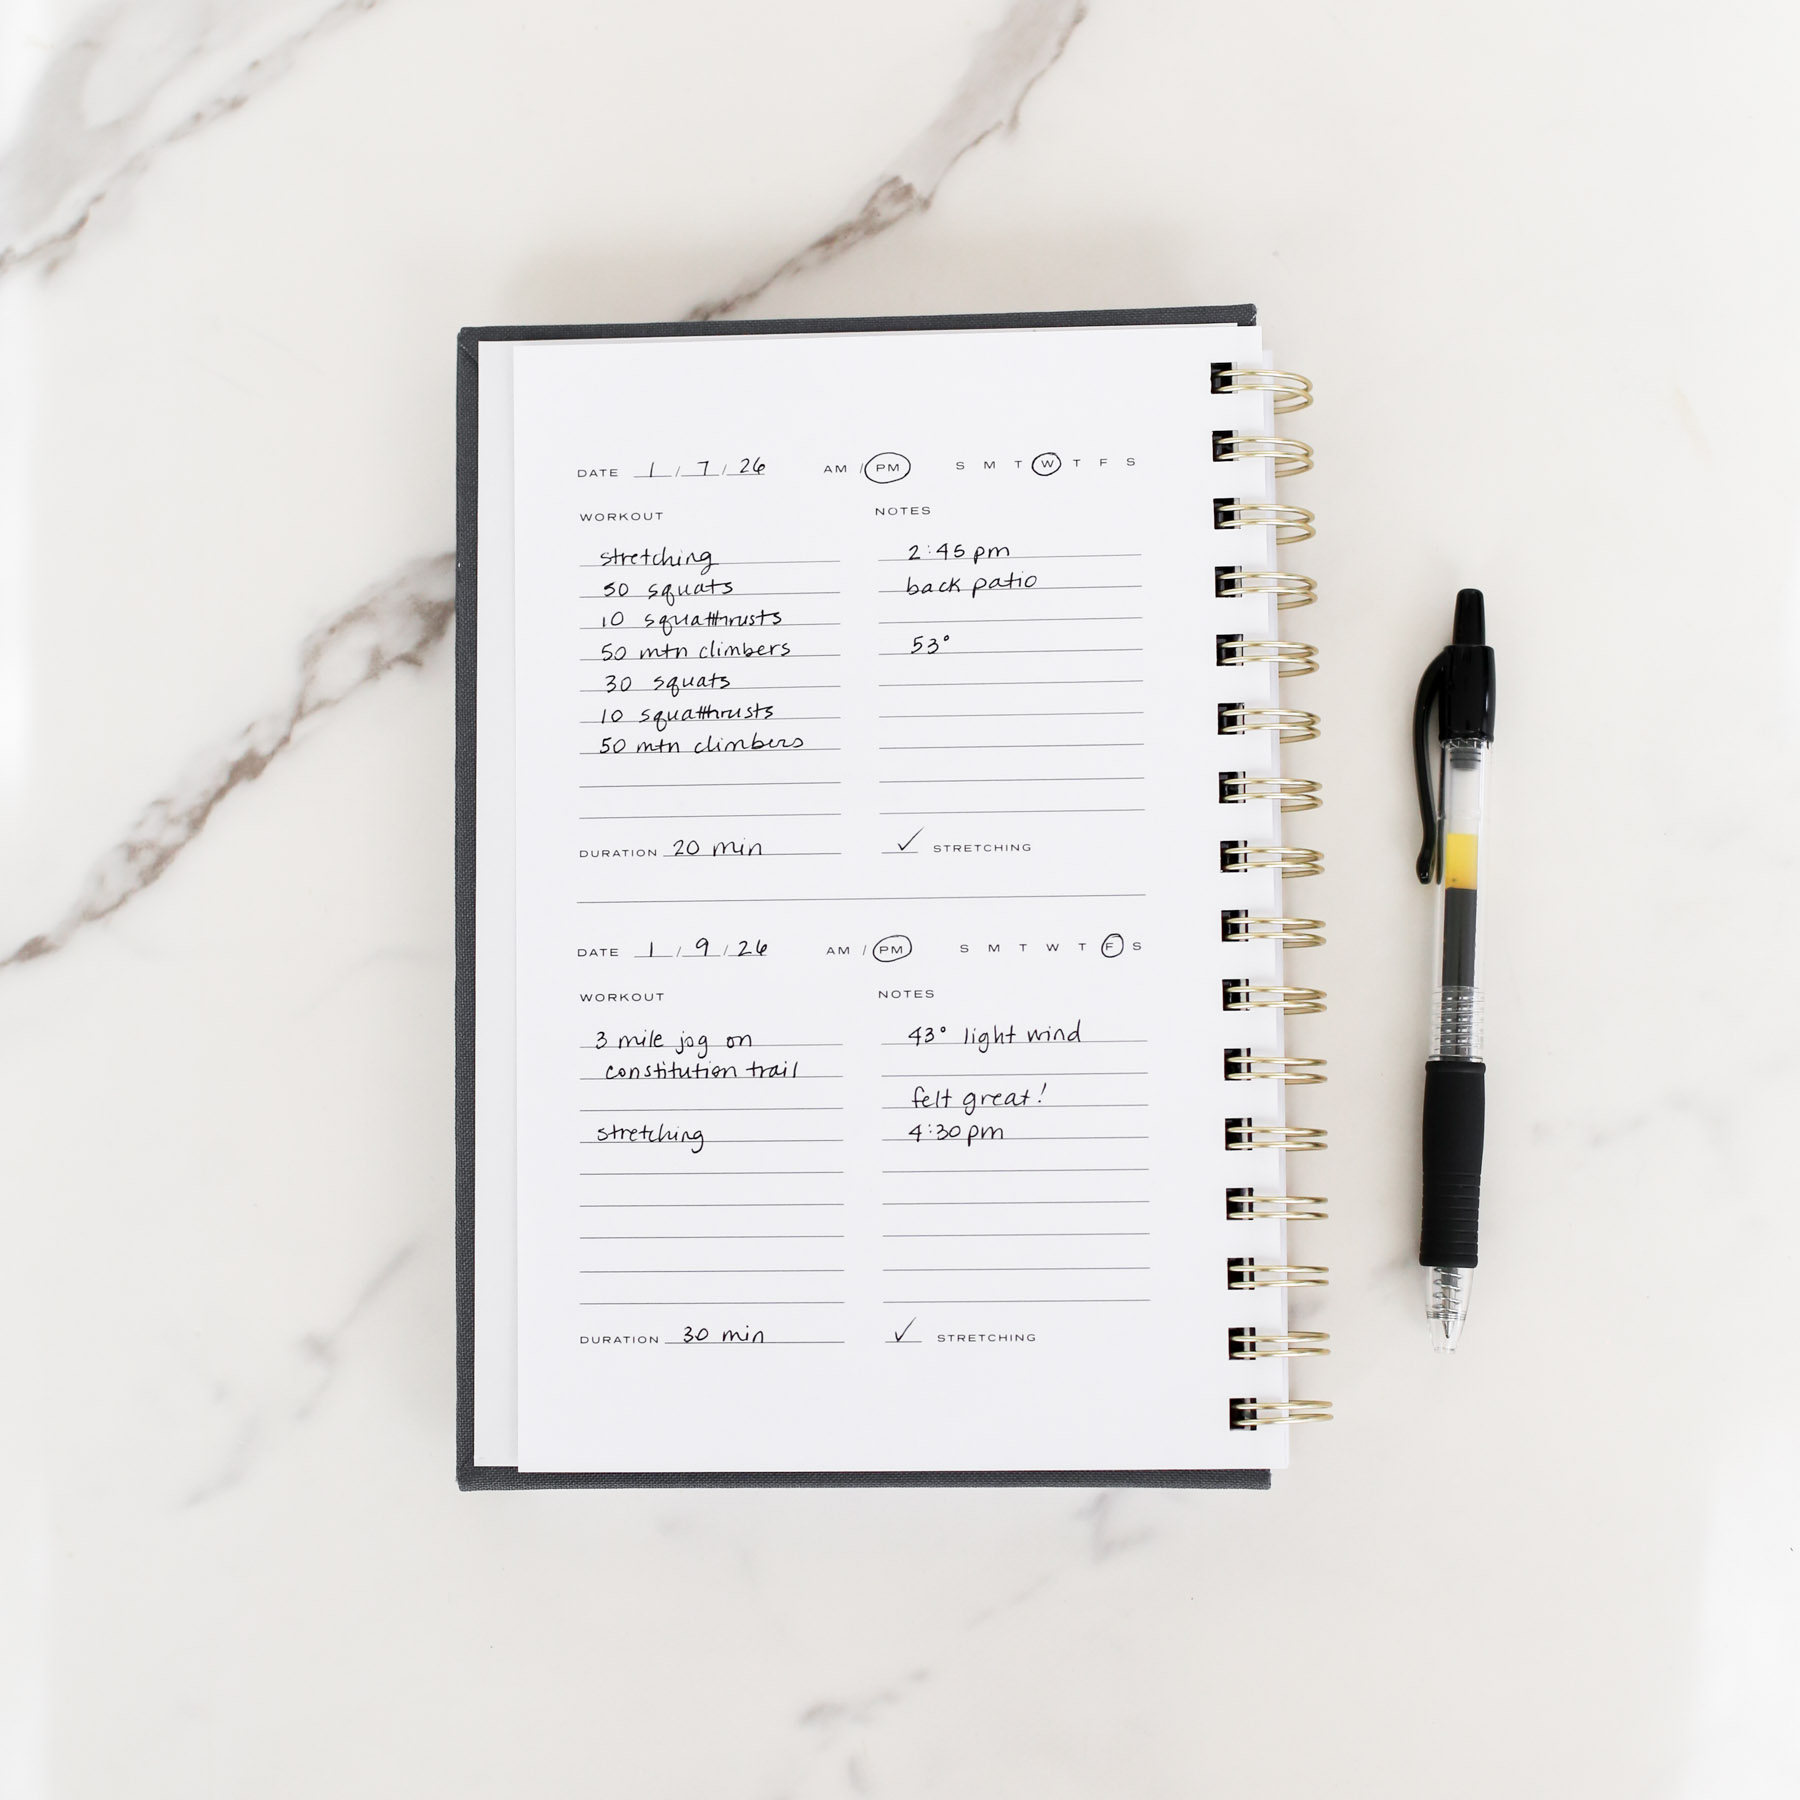 DATE 1 / 7 / 26 AM / PM S M T W T F S
WORKOUT NOTES
stretching 2:45 pm
50 squats back patio
10 squatthrusts
50 mtn climbers 53°
30 squats
10 squatthrusts
50 mtn climbers
DURATION 20 min ✓ STRETCHING
DATE 1 / 9 / 26 AM / PM S M T W T F S
WORKOUT NOTES
3 mile jog on 43° light wind
constitution trail
felt great!
stretching 4:30pm
DURATION 30 min ✓ STRETCHING